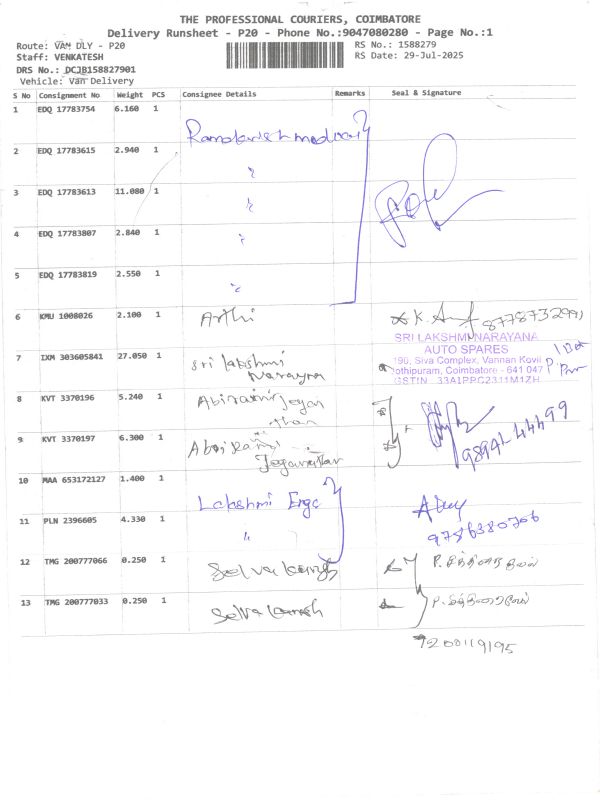 THE PROFESSIONAL COURIERS, COIMBATORE
Delivery Runsheet - P20 - Phone No.:9047080280 - Page No.:1
Route: VAM DLY - P20
RS No.: 1588279
Staff: VENKATESH
RS Date: 29-Jul-2025
DRS No.: DCJB158827901
Vehicle: Van Delivery
S No Consignment No Weight PCS Consignee Details Remarks Seal & Signature
1 EDQ 17783754 6.160 1
2 EDQ 17783615 2.940 1
3 EDQ 17783613 11.080 1
4 EDQ 17783807 2.840 1
5 EDQ 17783819 2.550 1
6 KMU 1008026 2.100 1 Arthi
SRI LAKSHMI NARAYANA
AUTO SPARES
7 IXM 303605841 27.050 1 Sri lakshmi
Narayna
196, Siva Complex, Vannan Kovil
Jothipuram, Coimbatore - 641 047
GSTIN 33AIPPG2311M1ZH
8 KVT 3370196 5.240 1
9 KVT 3370197 6.300 1
10 MAA 653172127 1.400 1 Lakshmi Ergo
11 PLN 2396605 4.330 1 "
9786380706
12 TMG 200777066 0.250 1
13 TMG 200777033 0.250 1